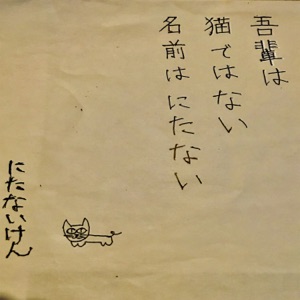 吾輩は
猫ではない
名前はにたない
にたないけん